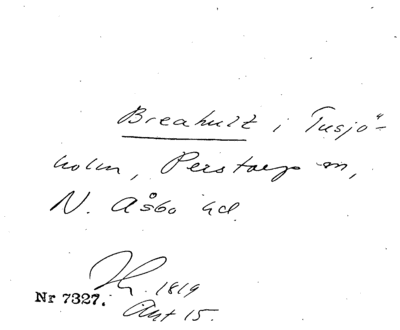 Breahult i Tusjö-
holm, Perstorps sn,
N. Åsbo hd.
1819
Nr 7327.
Ant 15.